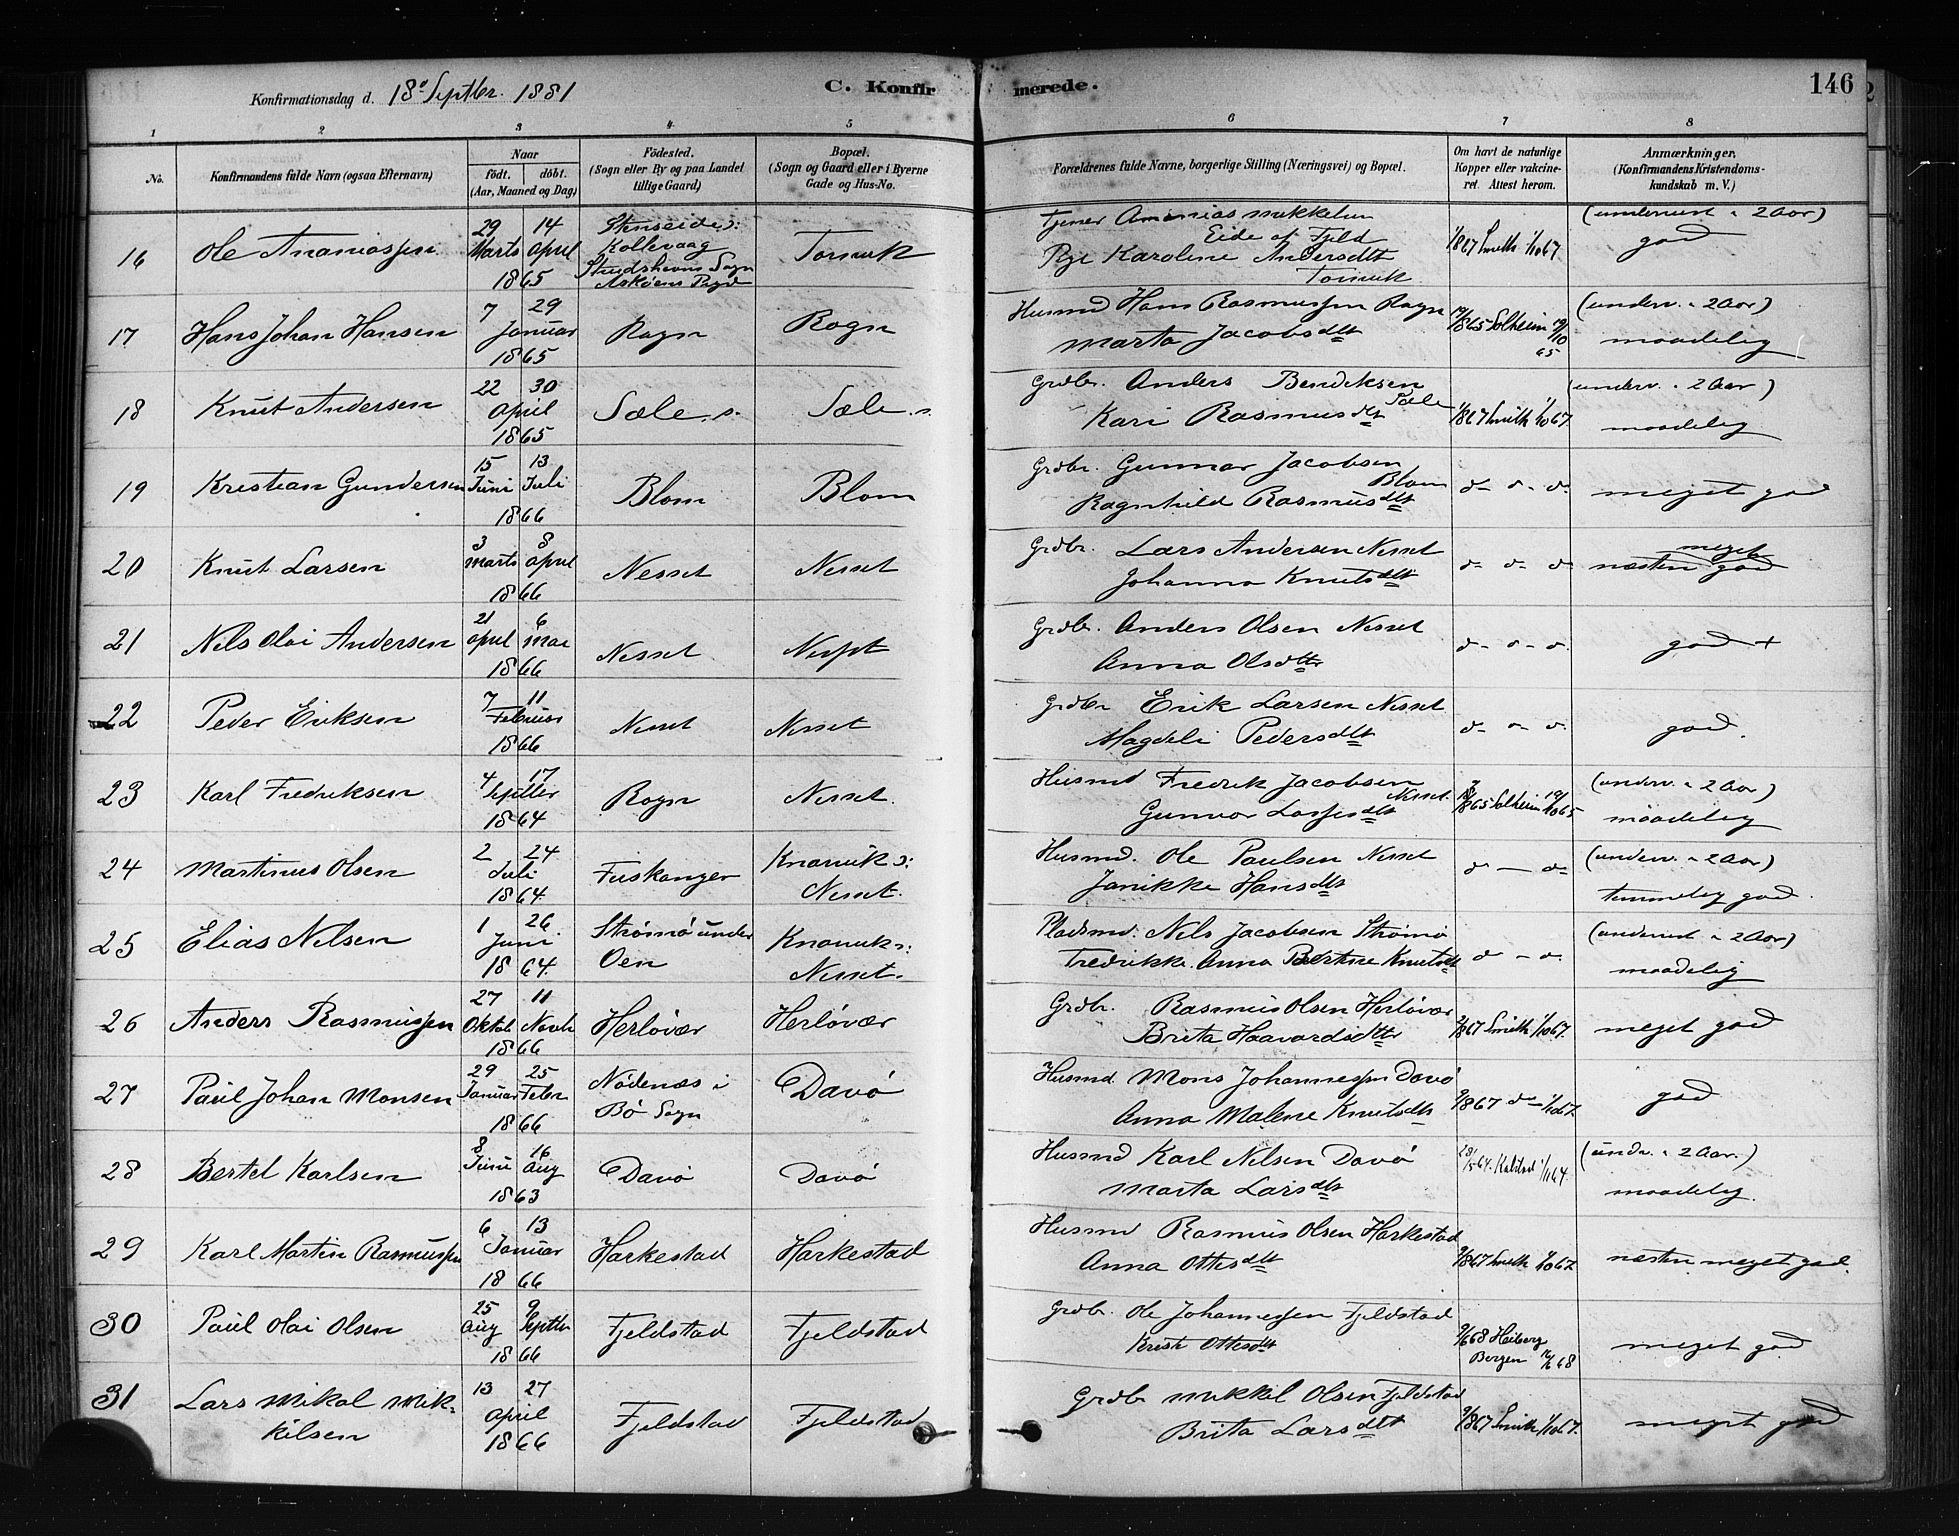 Konfirmationsdag d. 18de Septbr. 1881
C. Konfirmerede.
146
1 2 3 4 5 6 7 8
No.
Konfirmandens fulde Navn (ogsaa Efternavn)
Naar
födt. döbt.
(Aar, Maaned og Dag)
Födested.
(Sogn eller By og paa Landet
tillige Gaard)
Bopæl.
(Sogn og Gaard eller i Byerne
Gade og Hus-No.
Forældrenes fulde Navne, borgerlige Stilling (Næringsvei) og Bopæl.
Om havt de naturlige
Kopper eller vakcine-
ret. Attest herom.
Anmærkninger.
(Konfirmandens Kristendoms-
kundskab m. V.)
16 Ole Ananiassen
29 Marts 14 April 1865
Stenseide s:
Kollevaag
Strudshavns Sogn
Askøens Pgd
Torsvik
Tjener Ananias Mikkelsen
Eide af Fjeld
Pige Karoline Andersdtt
Torsvik
1/867 Smith 1/1067.
(undervist i 2 Aar)
god
17 Hans Johan Hansen
7 29 Januar 1865
Rogn
Rogn
Husmd Hans Rasmussen Rogn
Marta Jacobsdtt
17/865 Solheim 19/10 65
(underv. i 2 Aar)
maadelig
18 Knut Andersen
22 30 April 1865
Sæle s.
Sæle s.
Grdbr. Anders Bendiksen
Sæle
Kari Rasmusdtt
1/867 Smith 1/1067.
(underv. i 2 Aar)
maadelig
19 Kristian Gundersen
15 Juni 13 Juli 1866
Blom
Blom
Grdbr. Gunnar Jacobsen
Blom
Ragnhild Rasmusdtt
d- d- d-
meget god
20 Knut Larsen
3 Marts 8 April 1866
Nesset
Nesset
Grdbr. Lars Andersen Nesset
Johanna Knutsdtt
d- d- d-
meget
næsten god
21 Nils Olai Andersen
21 April 6 Mai 1866
Nesset
Nesset
Grdbr. Anders Olsen Nesset
Anna Olsdtter
d- d- d-
god +
22 Peder Eriksen
7 11 Februar 1866
Nesset
Nesset
Grdbr Erik Larsen Nesset
Magdeli Pedersdtt
d- d- d-
god.
23 Karl Fredriksen
4 17 Septbr 1864
Rogn
Nesset.
Husmd Fredrik Jacobsen
Nesset.
Gunvor Larsesdtt
17/865 Solheim 19/1065
(underv. i 2 Aar)
maadelig
24 Martinus Olsen
2 24 Juli 1864
Fuskanger
Knarvik s:
Nesset.
Husmd. Ole Paulsen Nesset
Janikke Hansdtt
d- — d-
(underv. i 2 Aar)
temmelig god.
25 Elias Nilsen
1 26. Juni 1864.
Strømø under
Oen
Knarvik s:
Nesset.
Pladsmd. Nils Jacobsen Strømø
Fredrikke Anna Bertine Knutsdtt
d - d.
(undervist i 2 Aar)
maadelig
26 Anders Rasmussen
27 Oktob 11 Novb 1866
Herløvær
Herløvær
Grdbr. Rasmus Olsen Herløvær
Brita Haavardsdtter
9/867 Smith 1/1067.
meget god
27 Paul Johan Monsen
29 Januar 25 Febr 1866
Nødenæs i
Bø Sogn
Davø
Husmd. Mons Johannessen Davø
Anna Malene Knutsdtt
9/867 d- 1/1067.
god
28 Bertel Karlsen
8 Juni 16 Aug 1863
Davø
Davø
Husmd Karl Nilsen Davø
Marta Larsdtt
(underv. i 2 Aar.)
maadelig.
29 Karl Martin Rasmussen
6 13 Januar 1866
Harkestad
Harkestad
Husmd Rasmus Olsen Harkestad
Anna Ottesdtt
9/867 Smith 1/1067.
næsten meget god.
30 Paul Olai Olsen
25 Aug 9 Septbr 1866
Fjeldstad
Fjeldstad
Grdbr. Ole Johannessen Fjeldstad
Kristi Ottesdtt
9/668 Heiberg
Bergen 16/6 68
meget god
31 Lars Mikal Mik-
kelsen
13 27 April 1866
Fjeldstad
Fjeldstad
Grdbr Mikkel Olsen Fjeldstad
Brita Larsdtt
9/867 Smith 1/1067.
meget god